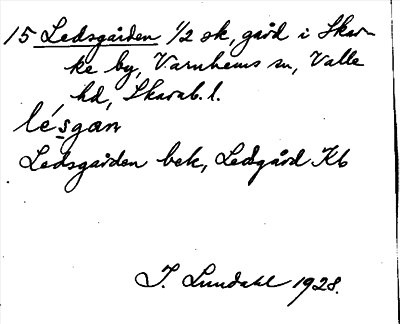 15 Ledsgården 1/2 sk, gård i Skar-
ke by, Varnhems sn, Valle
hd, Skarab. l.
lésgan
Ledsgården bek, Ledgård Kb
I. Lundahl 1928.